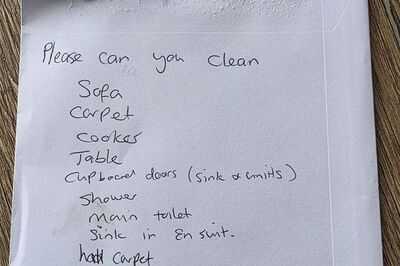 Please can you clean
Sofa
Carpet
Cooker
Table
Cupboard doors (sink & units)
Shower
main toilet
Sink in En suit.
hall carpet